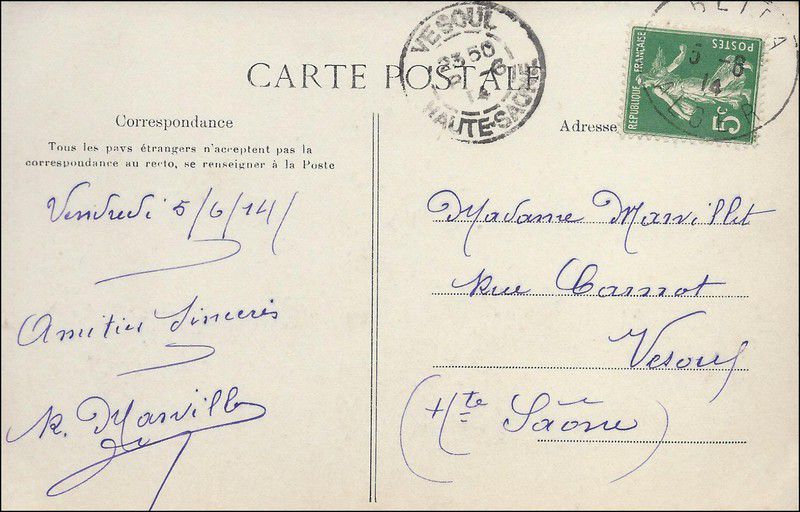 CARTE POSTALE
VESOUL
23 50
5 -6
14
HAUTE-SAONE
REPUBLIQUE FRANÇAISE
POSTES
5c
5 -6
14
Correspondance
Tous les pays étrangers n'acceptent pas la
correspondance au recto, se renseigner à la Poste
Vendredi 5/6/14/
Amitiés Sincères
Adresse
Madame Marvillet
Rue Carnot
Vesoul
(Hte Saône)